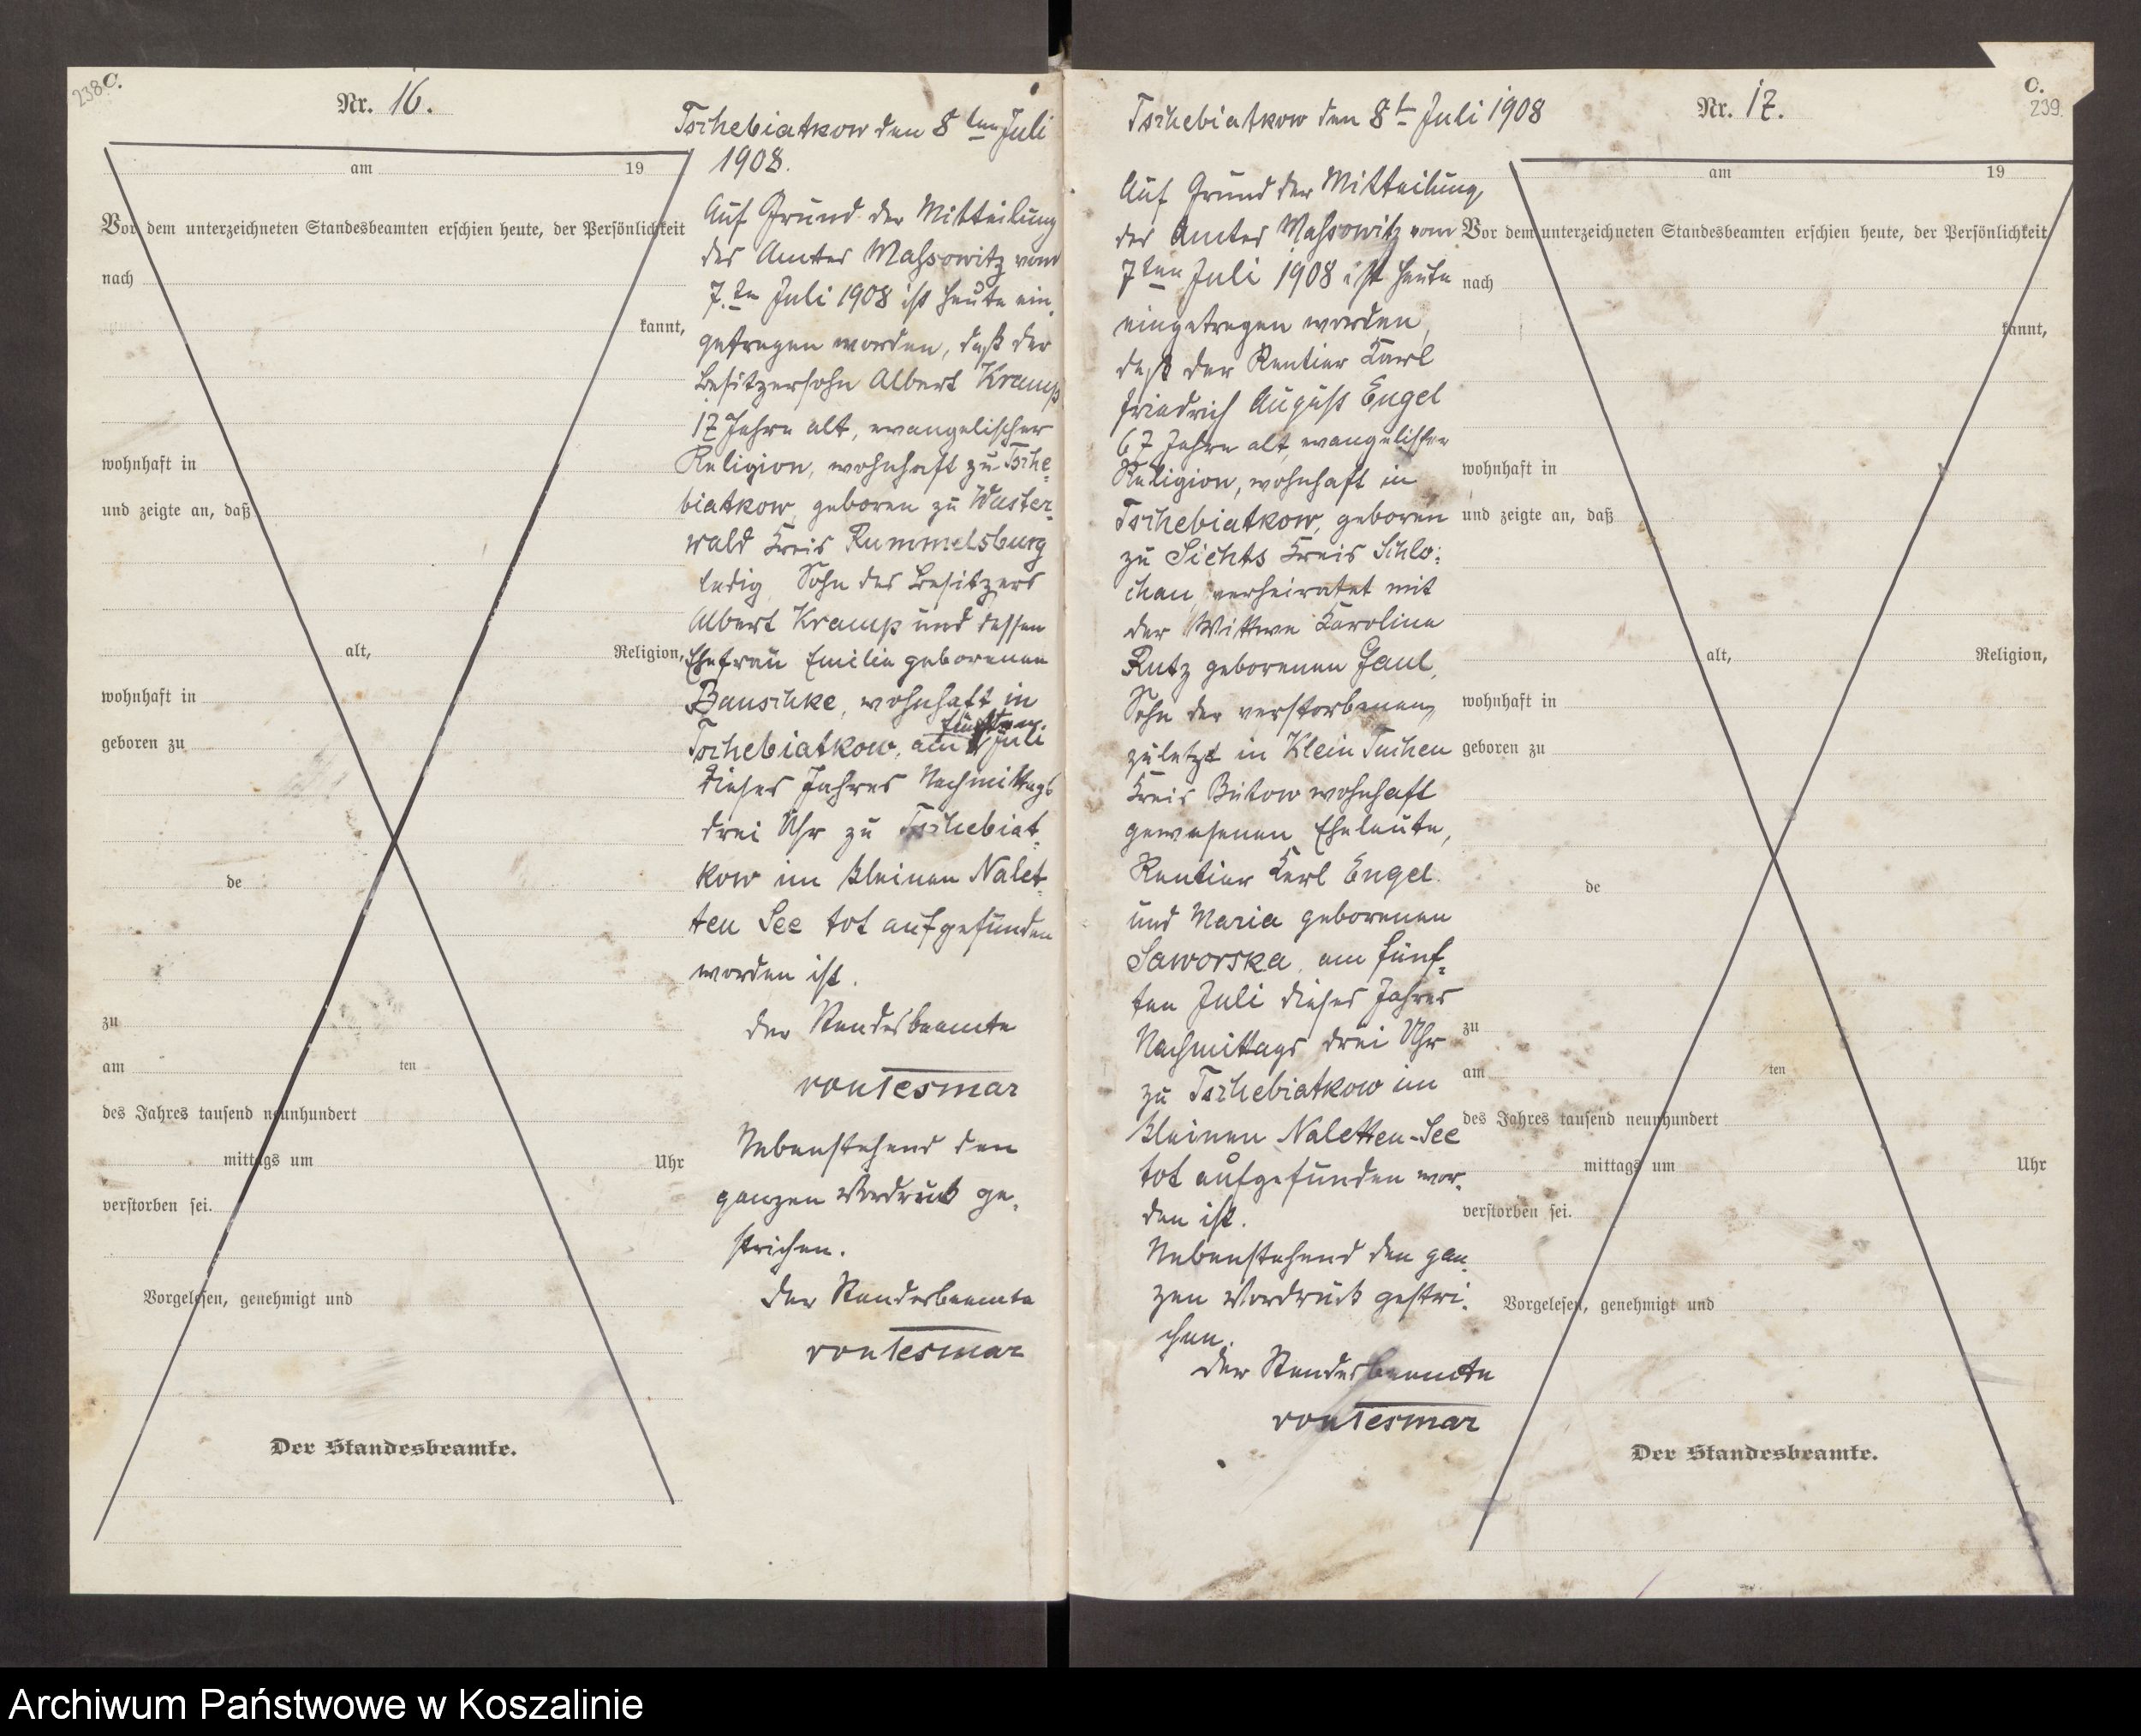 238
C.
Nr. 16.
am 19
Vor dem unterzeichneten Standesbeamten erschien heute, der Persönlichkeit
nach
kannt,
wohnhaft in
und zeigte an, daß
alt, Religion,
wohnhaft in
geboren zu
de
zu
am ten
des Jahres tausend neunhundert
mittags um Uhr
verstorben sei.
Vorgelesen, genehmigt und
Der Standesbeamte.
Tschebiatkow den 8ten Juli
1908.
Auf Grund der Mitteilung
des Amtes Massowitz vom
7.ten Juli 1908 ist heute ein-
getragen worden, daß der
Besitzersohn Albert Kramp
17 Jahre alt, evangelischer
Religion, wohnhaft zu Tsche-
biatkow, geboren zu Wuster-
wald Kreis Rummelsburg
ledig, Sohn des Besitzers
Albert Kramp und dessen
Ehefrau Emilie geborenen
Bauschke, wohnhaft in
fünften
Tschebiatkow, am Juli
dieses Jahres Nachmittags
drei Uhr zu Tschebiat-
kow im kleinen Nalet-
ten See tot aufgefunden
worden ist.
Der Standesbeamte
von Tesmar
Nebenstehend den
ganzen Vordruck ge-
strichen.
Der Standesbeamte
von Tesmar
C.
239.
Nr. 17.
Tschebiatkow den 8t Juli 1908
Auf Grund der Mitteilung
des Amtes Massowitz vom
7ten Juli 1908 ist heute
eingetragen worden,
daß der Rentier Karl
Friedrich August Engel
67 Jahre alt, evangelischer
Religion, wohnhaft in
Tschebiatkow, geboren
zu Sichts Kreis Schlo-
chau, verheiratet mit
der Wittwe Karoline
Rutz geborenen Gaul,
Sohn der verstorbenen,
zuletzt in Klein Tuchen
Kreis Bütow wohnhaft
gewesenen Eheleute,
Rentier Karl Engel
und Maria geborenen
Saworska, am fünf-
ten Juli dieses Jahres
Nachmittags drei Uhr
zu Tschebiatkow im
kleinen Naletten-See
tot aufgefunden wor-
den ist.
Nebenstehend den gan-
zen Vordruck gestri-
chen.
Der Standesbeamte
von Tesmar
am 19
Vor dem unterzeichneten Standesbeamten erschien heute, der Persönlichkeit
nach
kannt,
wohnhaft in
und zeigte an, daß
alt, Religion,
wohnhaft in
geboren zu
de
zu
am ten
des Jahres tausend neunhundert
mittags um Uhr
verstorben sei.
Vorgelesen, genehmigt und
Der Standesbeamte.
Archiwum Państwowe w Koszalinie